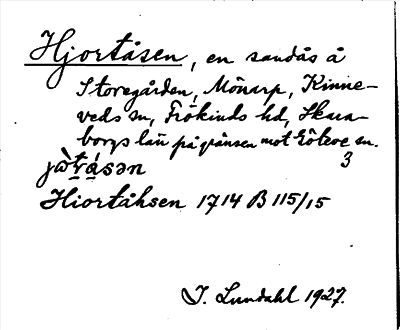 Hjortåsen, en sandås å
Storegården, Mönarp, Kinne-
veds sn, Frökinds hd, Skara-
borgs län på gränsen mot Göteve sn.
3
Hiortåhsen 1714 B 115/15
I. Lundahl 1927.